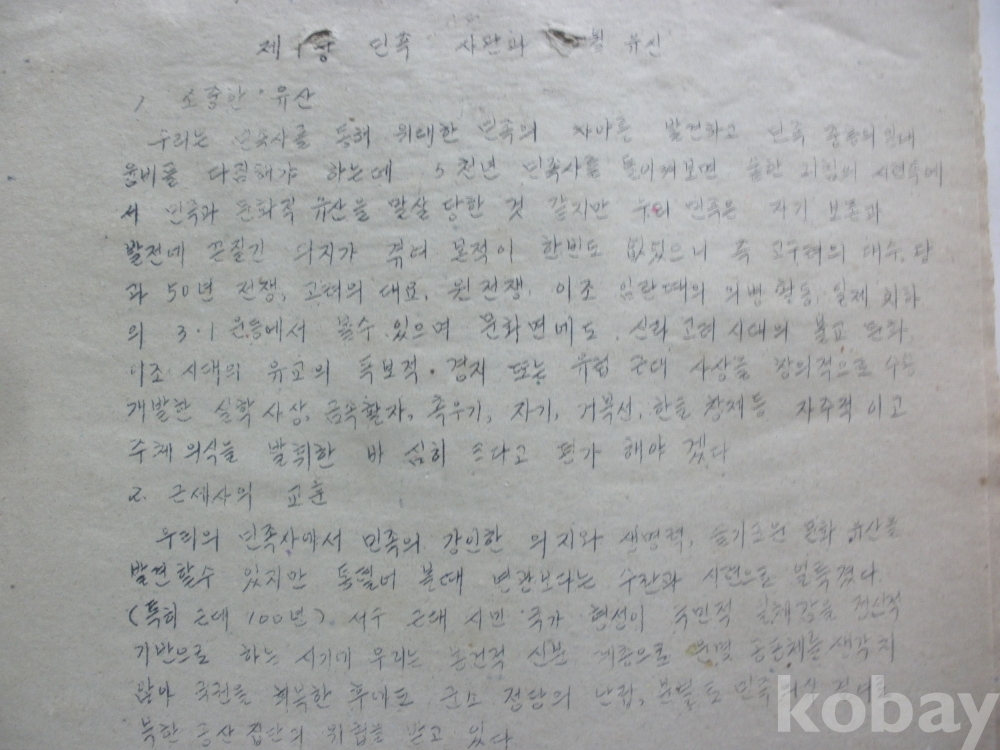 제1장 민족 사관과 유신
1 소중한 유산
우리는 민족사를 통해 위대한 민족의 발견하고 민족 중흥의
웅비를 다짐해야 하는데 5천년 민족사를 돌이켜보면 숱한 시련속에
서 민족과 문화적 유산을 말살 당한 것 같지만 우리 민족은 자기 보존과
발전에 끈질긴 의지가 꺾여 본적이 한번도 없었으니 즉 고구려의 대수, 당
과 50년 전쟁, 고려의 대요, 원전쟁, 이조 임란때의 의병 활동, 일제 치하
의 3·1 운동에서 볼수 있으며 문화면에도 신라 고려 시대의 불교 문화
이조 시대의 유교의 독보적 · 경지 또는 유럽 근대 사상을 창의적으로 수용
개발한 실학 사상, 금속활자, 측우기, 자기, 거북선, 한글 창제등 자주적 이고
주체 의식을 발휘한 바 심히 크다고 평가 해야 겠다
2. 근세사의 교훈
우리의 민족사에서 민족의 강인한 의지와 생명력, 슬기로운 문화 유산을
발견할수 있지만 통털어 볼때 보다는 수난과 시련으로 얼룩졌다
(특히 근대 100년) 서구 근대 시민 국가 형성이 국민적 일체감을 정신적
기반으로 하는 시기에 우리는 봉건적 신분 계층으로 운명 공동체를 생각치
않아 국권을 회복한 후에도 군소 정당의 난립, 분열로 민족
북한 공산 집단의 위협을 받고 있다
kobay